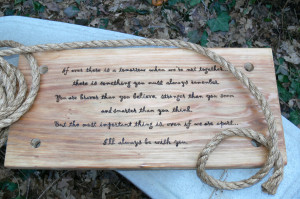 If ever there is a tomorrow when we're not together
there is something you must always remember.
You are braver than you believe, stronger than you seem
and smarter than you think.
But the most important thing is, even if we are apart...
I'll always be with you.